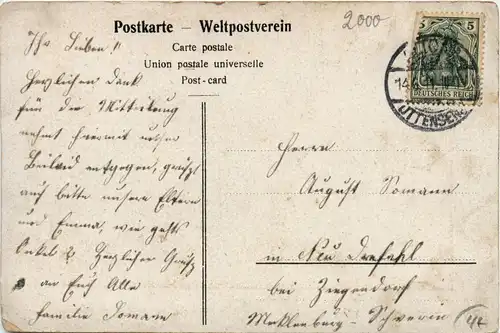 Postkarte – Weltpostverein
Carte postale
Union postale universelle
Post-card
2000
5 5
DEUTSCHES REICH
OTTENSEN
Ihr Lieben!!
Herzlichen Dank
für die Mitteilung
nehmt hiermit unser
Beileid entgegen, grüßt
auch bitte unsere Eltern
und Emma, wie gehts
Onkel & Herzlichen Gruß
an Euch Alle
Familie Somann
Herrn
August Somann
in Neu Drefahl
bei Ziegendorf
Mecklenburg-Schwerin